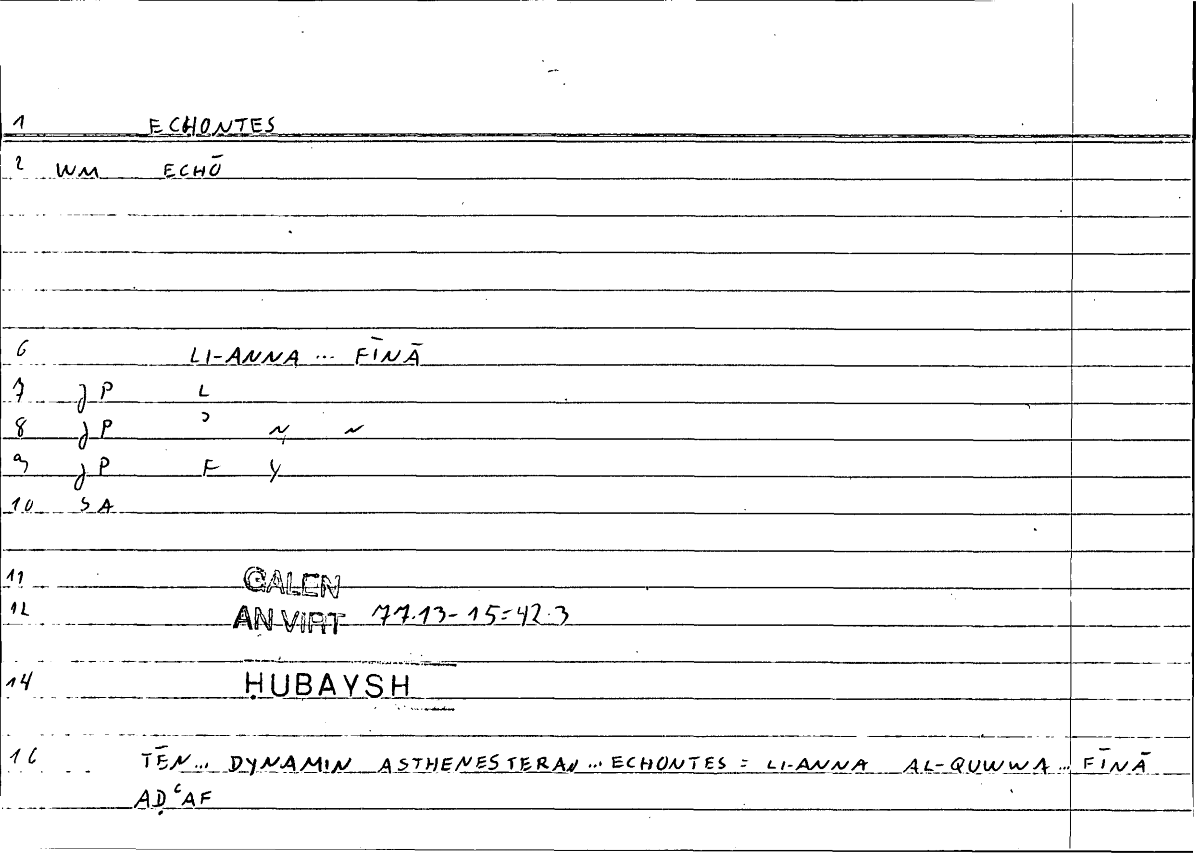 1 ECHONTES
2 WM ECHŌ
6 LI-ANNA ... FĪNĀ
7 JP L
8 JP ʾ N̡ N
9 JP F Y
10 SA
11 GALEN
12 AN VIRT 77.13-15=42.3
14 ḤUBAYSH
16 TĒN... DYNAMIN ASTHENESTERAN ... ECHONTES = LI-ANNA AL-QUWWA ... FĪNĀ
AḌʿAF